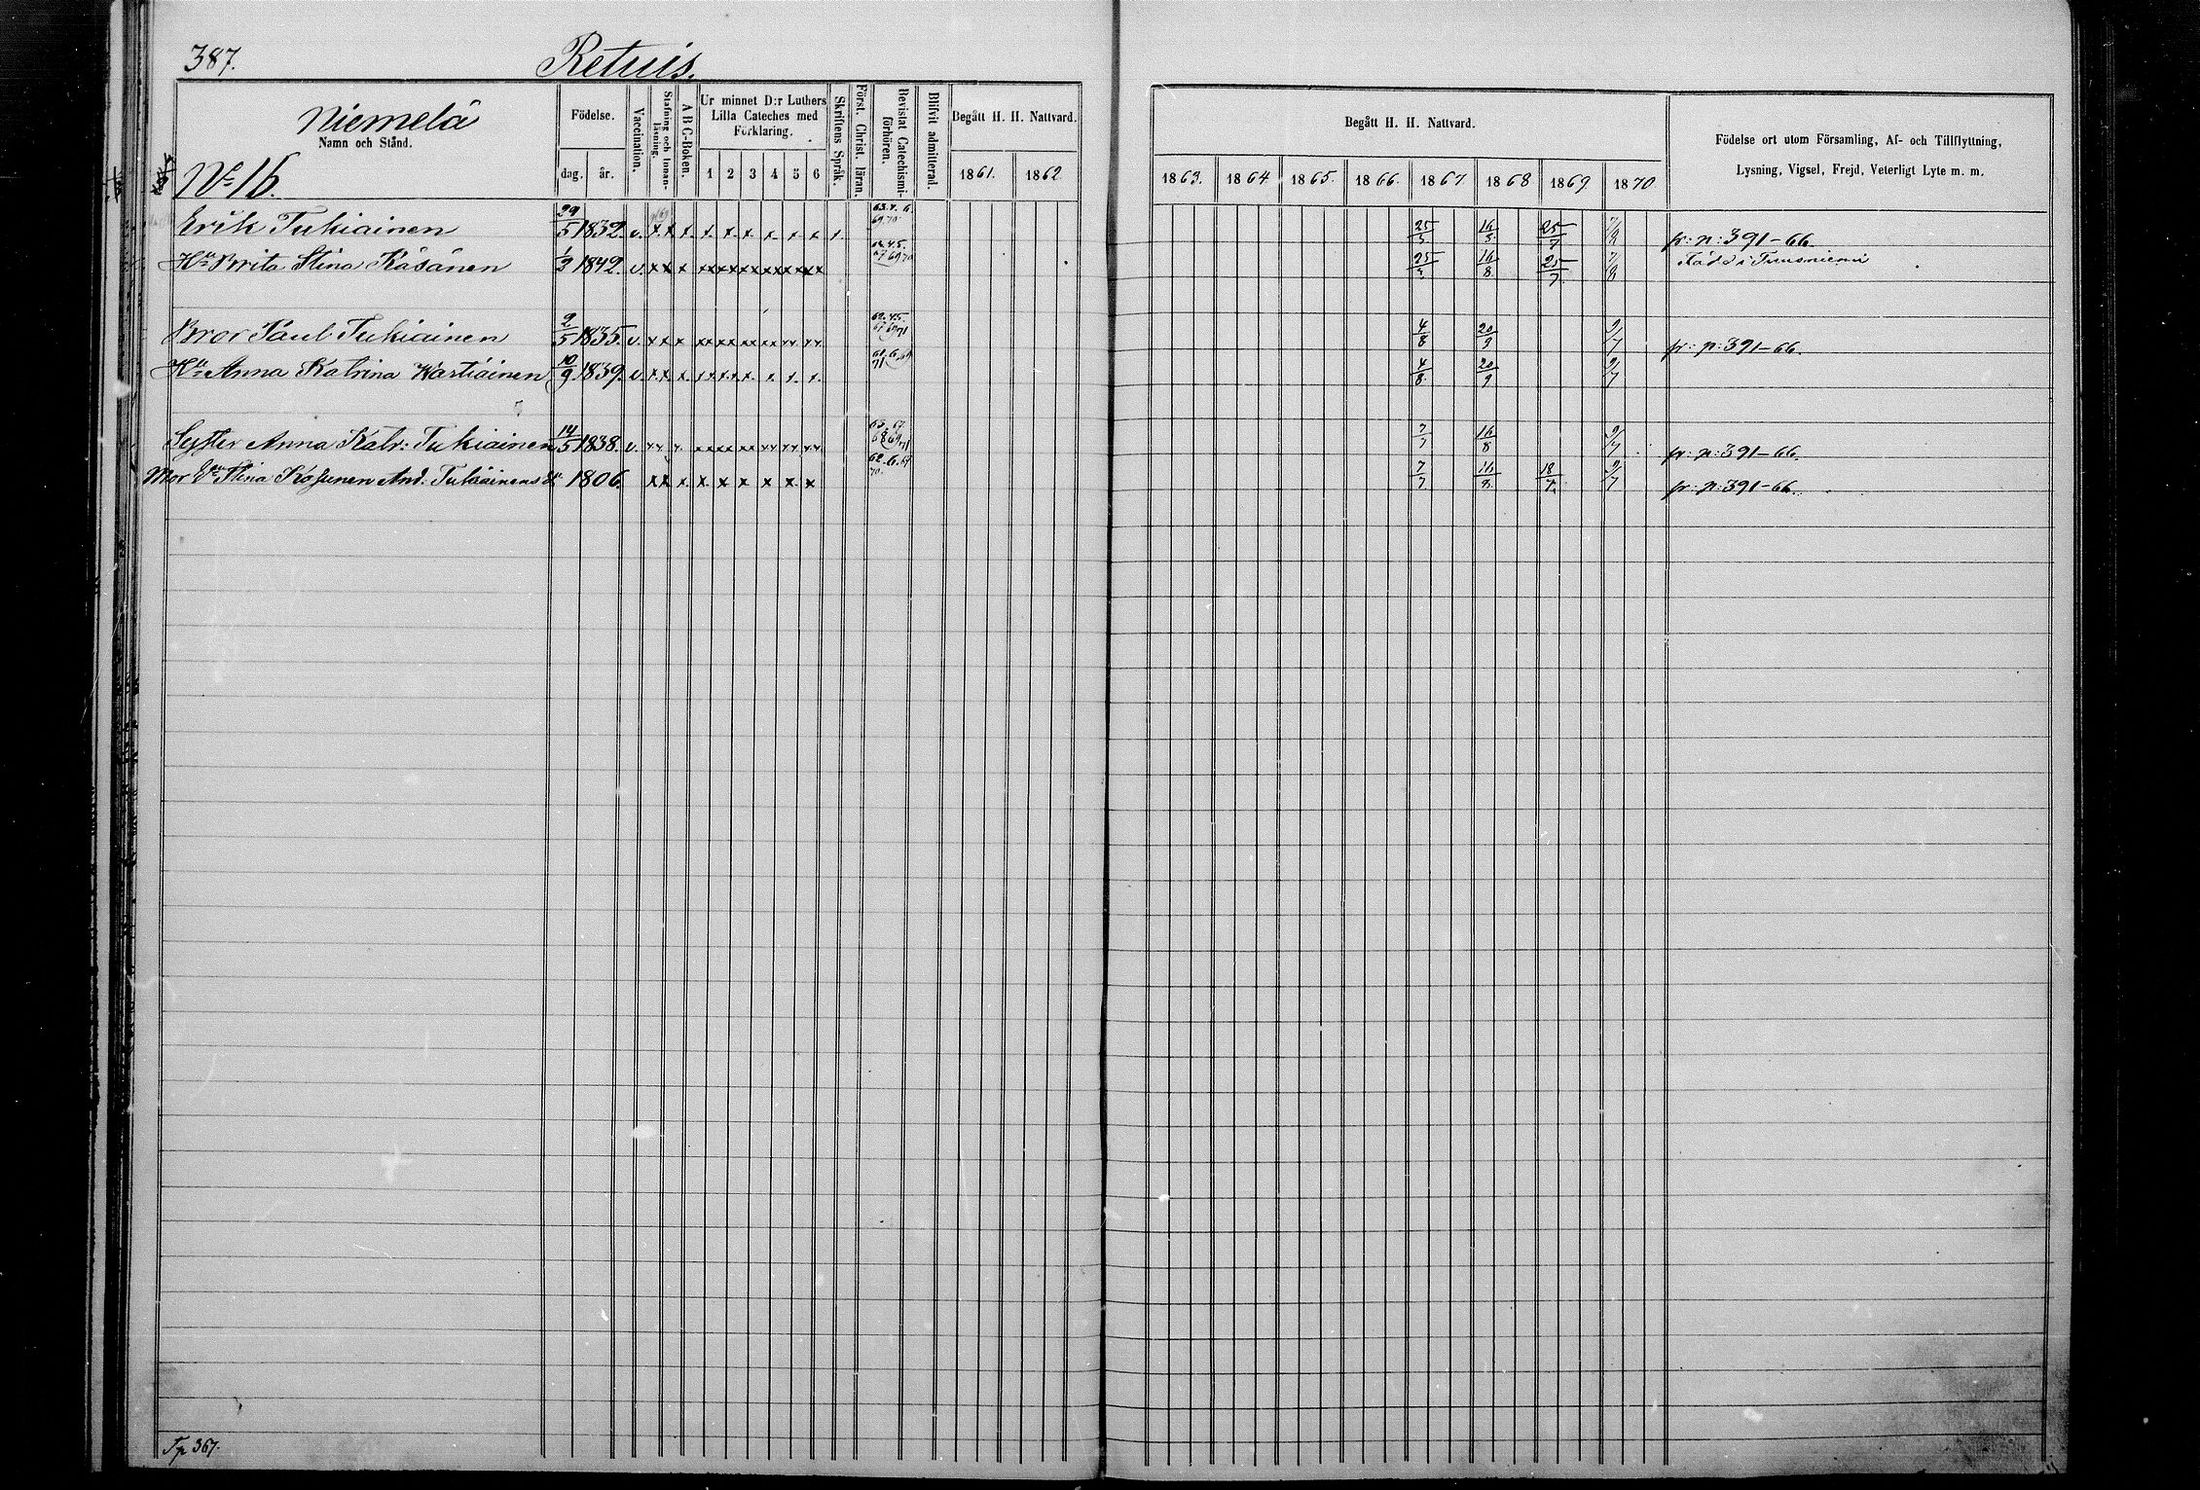 387.
Retuis.
Niemelä
Namn och Stånd.
No 16.
Födelse.
dag. år.
Vaccination.
Stafning och Innanläsning.
A B C-Boken.
Ur minnet D:r Luthers Lilla Cateches med Förklaring.
1 2 3 4 5 6
Skriftens Språk.
Först. Christ. läran.
Bevistat Catechismi förhören.
Blifvit admitterad.
Begått H. H. Nattvard.
1861. 1862
Begått H. H. Nattvard.
1863. 1864 1865. 1866. 1867 1868 1869 1870
Födelse ort utom Församling, Af- och Tillflyttning,
Lysning, Vigsel, Frejd, Veterligt Lyte m. m.
Erik Tukiainen 29/5 1832. v. x. x x. x. x. x. x. x. x. x. 69.70. 25/5 16/8 25/7 7/8 fr: p: 391-66
Hu Brita Stina Räsänen 1/3 1842. v. x x x xx xx xx xx xx xx 25/5 16/8 25/7 7/8 född i Tuusniemi
Bror Paul Tukiainen 9/5 1835. v. x x x xx xx xx xx xx xx 4/8 20/9 9/7 fr: p: 391-66.
Hu Anna Katrina Wartiainen 10/9 1839. v. x x x. 71 4/8 20/9 9/7
Syster Anna Katr: Tukiainen 14/5 1838. v. x x x. xx xx xx xx xx xx 7/7 16/8 9/7 fr: p: 391-66.
Mor Stina Kosunen And. Tukiainens 1806. x x x. x. x x x x. x 7/7 16/8 18/7 9/7 fr: p: 391-66.
T p 367.